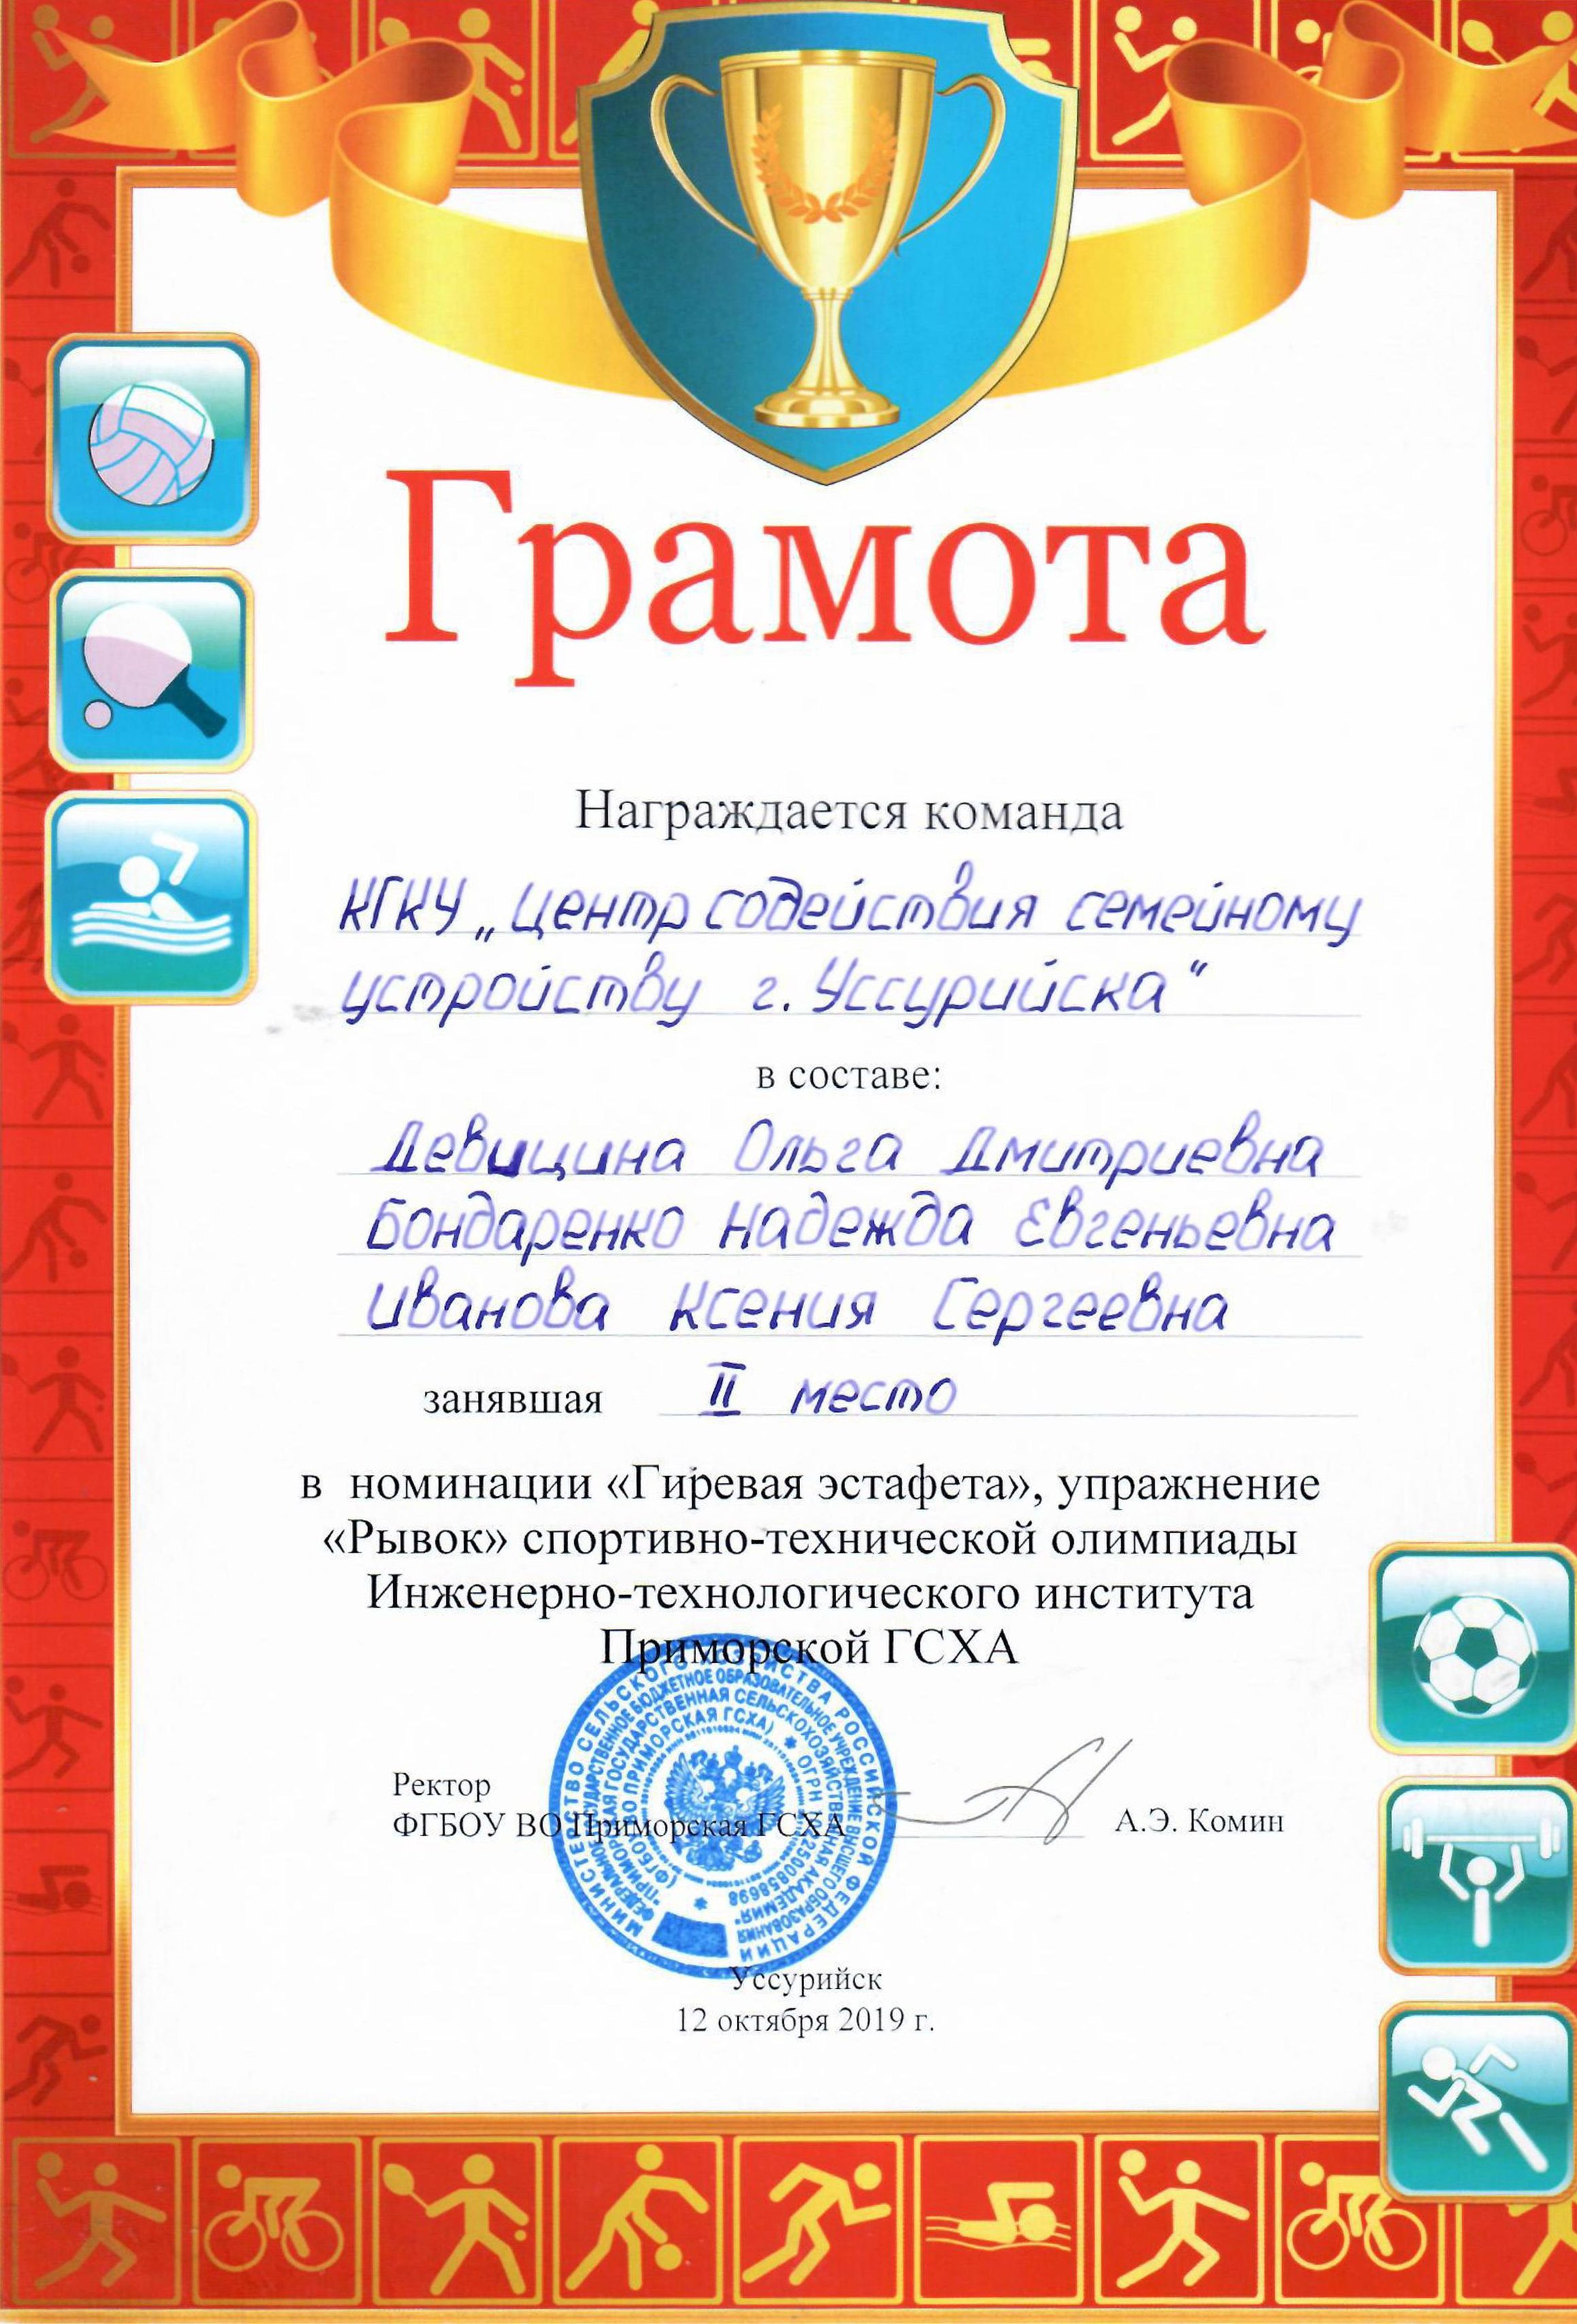 Грамота
Награждается команда
КГКУ „Центр содействия семейному
устройству г. Уссурийска“
в составе:
Девицина Ольга Дмитриевна
Бондаренко Надежда Евгеньевна
Иванова Ксения Сергеевна
занявшая II место
в номинации «Гиревая эстафета», упражнение
«Рывок» спортивно-технической олимпиады
Инженерно-технологического института
Приморской ГСХА
МИНИСТЕРСТВО СЕЛЬСКОГО ХОЗЯЙСТВА РОССИЙСКОЙ ФЕДЕРАЦИИ
ФЕДЕРАЛЬНОЕ ГОСУДАРСТВЕННОЕ БЮДЖЕТНОЕ ОБРАЗОВАТЕЛЬНОЕ УЧРЕЖДЕНИЕ ВЫСШЕГО ОБРАЗОВАНИЯ
"ПРИМОРСКАЯ ГОСУДАРСТВЕННАЯ СЕЛЬСКОХОЗЯЙСТВЕННАЯ АКАДЕМИЯ"
(ФГБОУ ВО ПРИМОРСКАЯ ГСХА) * ОГРН
Ректор
ФГБОУ ВО Приморская ГСХА
А.Э. Комин
Уссурийск
12 октября 2019 г.